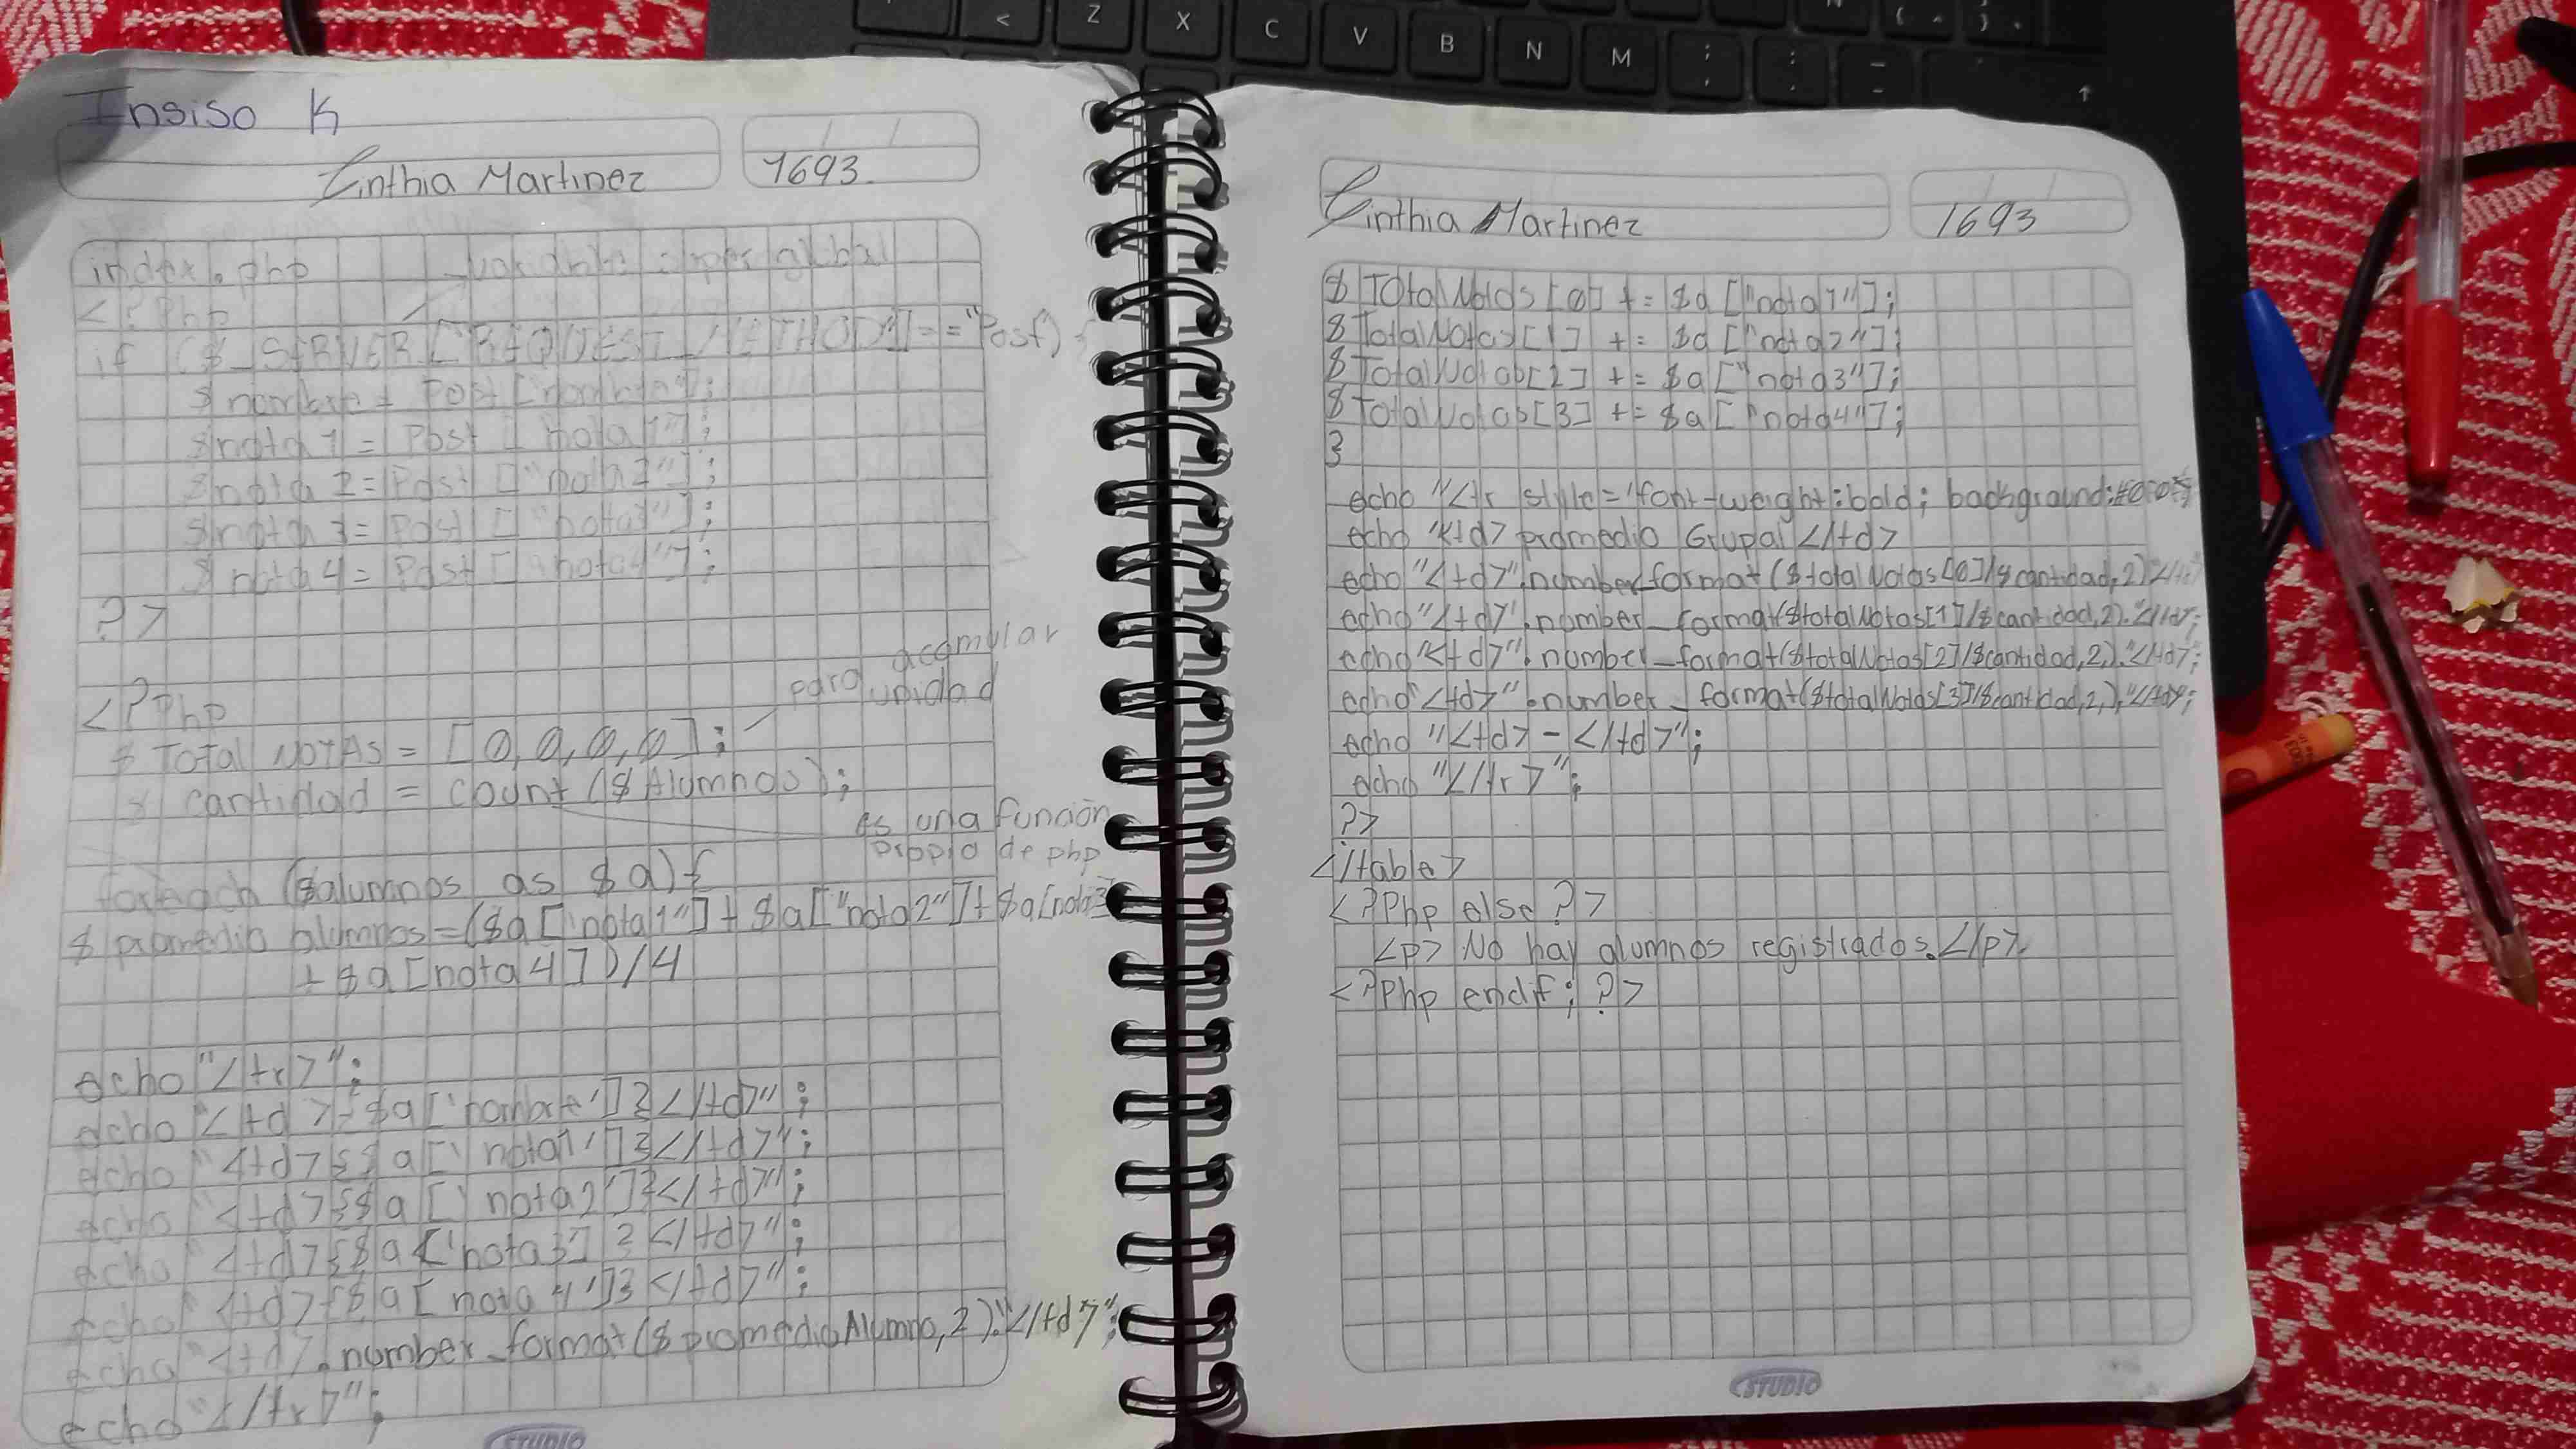 < Z X C V B N M ; : -
Insiso K
Cinthia Martinez 1693
index.php variable super global
<?Php
if ($_SERVER["REQUEST_METHOD"]=="Post") {
$nombre = Post ["nombre"];
$nota 1 = Post ["nota1"];
$nota 2= Post ["nota2"];
$nota 3= Post ["nota3"];
$nota 4= Post ["nota4"];
?>
para acomular
unidad
<?Php
$ Total NOTAS = [0,0,0,0];
$ cantidad = count ($Alumnos);
es una función
propia de php
foreach ($alumnos as $a){
$ promedio alumnos=($a["nota1"]+ $a["nota2"]+$a[nota3]
+ $a[nota4])/4
echo"</tr>";
echo"</td>{$a['nombre']}</td>";
echo "<td>{$a['nota1']}</td>";
echo "<td>{$a['nota2']}</td>";
echo "<td>{$a['nota3'] }</td>";
echo "<td>{$a[nota4']}</td>";
echo"<td>.number_format($promedioAlumno,2)."</td>";
echo"</tr>";
STUDIO
Cinthia Martinez 1693
$TOtalNotas[0] += $a["nota1"];
$TotalNotas[1] += $a["nota2"];
$TotalNotab[2] += $a["nota3"];
$TotalNotab[3] += $a["nota4"];
}
echo "<tr style='font-weight:bold; background:
echo "<td>promedio Grupal </td>
echo "<td>".number_format($totalNotas[0]/$cantidad,2)</td>
echo"<td>'.number_format($totalNotas[1]/$cantidad,2)."</td>";
echo"<td>".number_format($totalNotas[2]/$cantidad,2,)."</td>;
echo"<td>".number_format($totalNotas[3]/$cantidad,2,),"</td>";
echo "<td>-</td>";
echo "</tr>";
?>
</table>
<?Php else?>
<p> No hay alumnos registrados.</p>.
<?Php endif; ?>
STUDIO